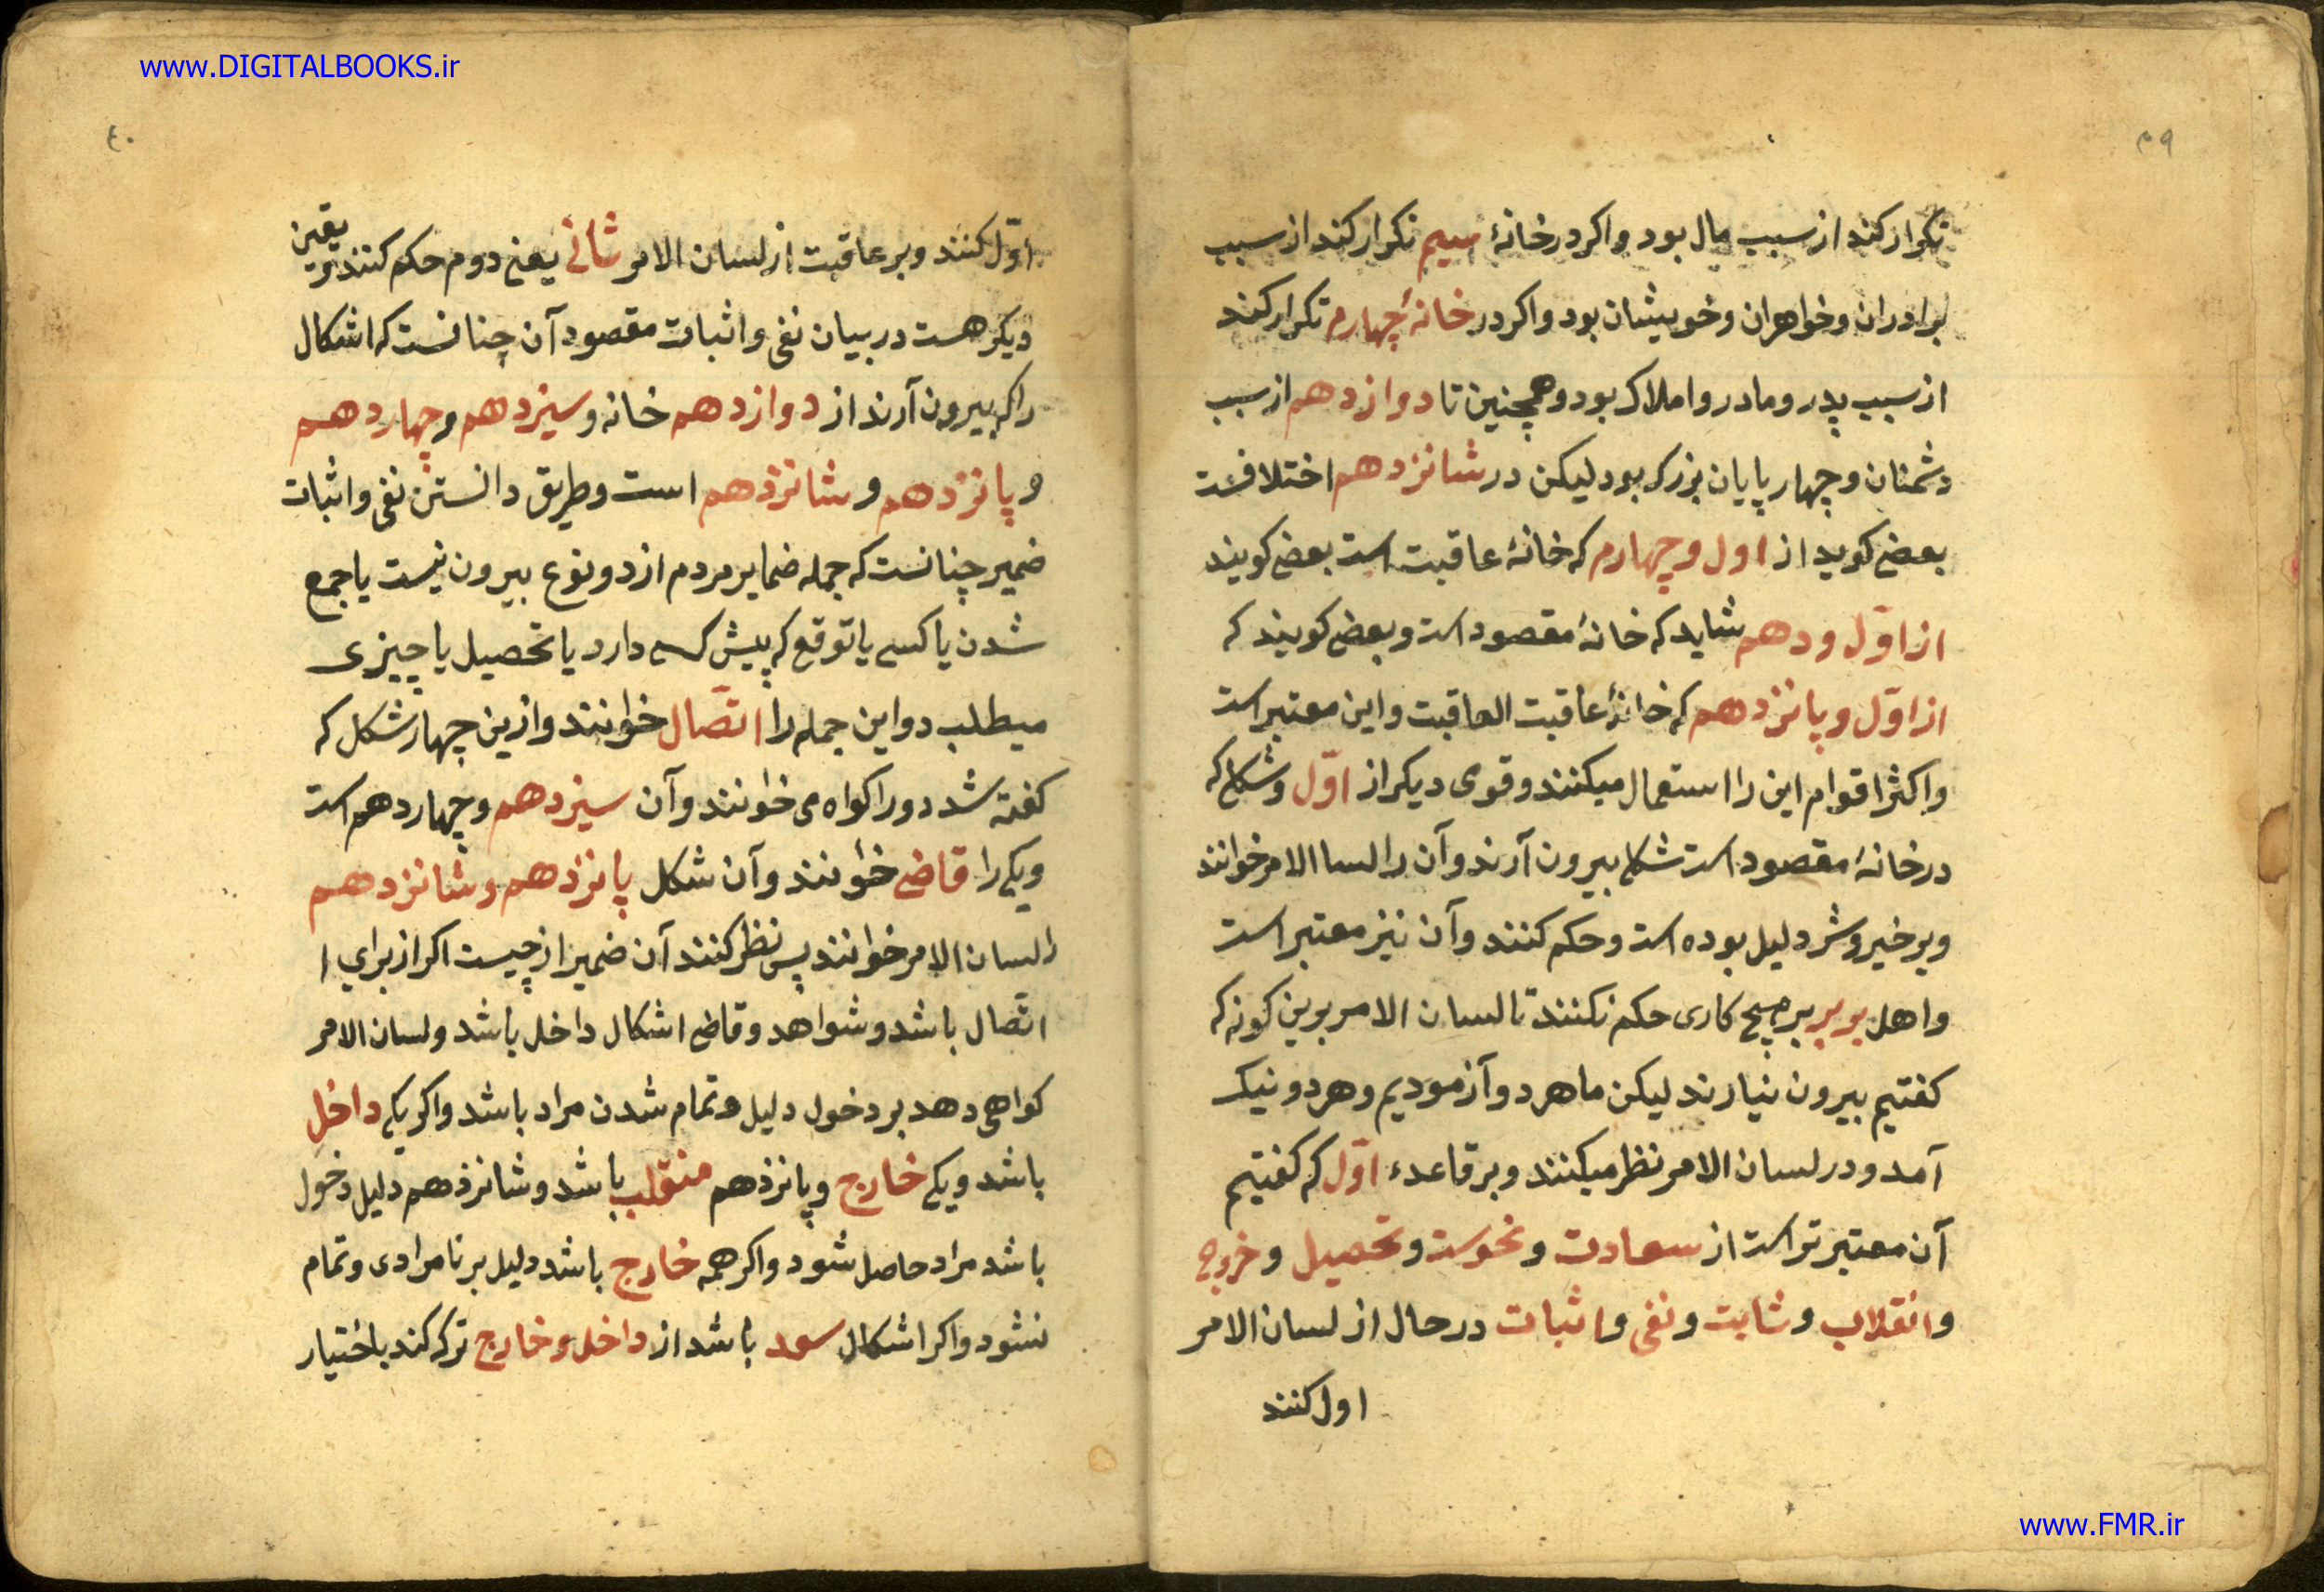 www.DIGITALBOOKS.ir
۳۹
تکرار کند از سبب مال بود واکر درخانهٔ سیم تکرار کند از سبب
برادران وخواهران وخویشان بود واکر در خانهٔ چهارم تکرار کند
از سبب پدر ومادر واملاک بود وهمچنین تا دوازدهم از سبب
دشمنان وچهارپایان بزرک بود لیکن در شانزدهم اختلافست
بعضی کوید از اول وچهارم که خانهٔ عاقبت است بعضی کویند
از اوّل ودهم شاید که خانهٔ مقصود است وبعضی کویند که
از اوّل وپانزدهم که خانهٔ عاقبت العاقبت واین معتبر است
واکثر اقوام این را استعمال میکنند وقوی دیکر از اوّل وشکلی که
درخانهٔ مقصود است شکلی بیرون آرند وآن را لسا الامر خوانند
وبر خیر وشر دلیل بوده است وحکم کنند وآن نیز معتبر است
واهل بربر بر هیچ کاری حکم نکنند تا لسان الامر برین کونه که
کفتیم بیرون نیارند لیکن ما هردو آزمودیم وهردو نیک
آمد ودر لسان الامر نظر میکنند وبر قاعدء اوّل که کفتیم
آن معتبرتر است از سعادت ونحوست وتحصیل وخروج
وانقلاب وثابت ونفی واثبات درحال از لسان الامر
اول کنند
٤٠
اوّل کنند وبر عاقبت از لسان الامر ثانی یعنی دوم حکم کنند یقین
دیکر هست در بیان نفی واثبات مقصود آن چنانست که اشکال
را که بیرون آرند از دوازدهم خانه وسیزدهم وچهاردهم
وپانزدهم وشانزدهم است وطریق دانستن نفی واثبات
ضمیر چنانست که جمله ضمایر مردم از دو نوع بیرون نیست یا جمع
شدن یا کسی یا توقع که پیش کسی دارد یا تحصیل یا چیزی
میطلب دواین جمله را اتّصال خوانند وازین چهار شکل که
کفته شد دو را کواه می خوانند وآن سیزدهم وچهاردهم است
ویکی را قاضی خوانند وآن شکل پانزدهم وشانزدهم
را لسان الامر خوانند پس نظر کنند آن ضمیر از چیست اکر از برای ا
اتّصال باشد وشواهد وقاضی اشکال داخل باشد ولسان الامر
کواهی دهد بر دخول دلیل وتمام شدن مراد باشد واکر یکی داخل
باشد ویکی خارج وپانزدهم منقلب باشد وشانزدهم دلیل دخول
باشد مراد حاصل شود واکر همه خارج باشد دلیل بر نامرادی وتمام
نشود واکر اشکال سعد باشد از داخل وخارج ترک کند باختیار
www.FMR.ir